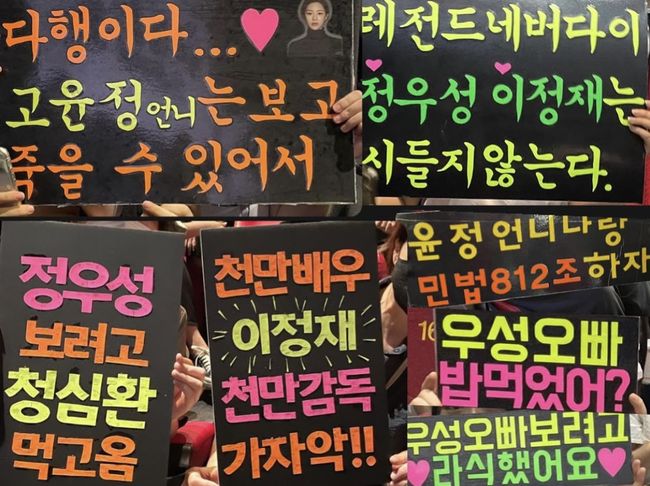 다행이다...
고윤정언니는보고
죽을 수 있어서
레전드네버다이
정우성 이정재는
시들지않는다.
정우성
보려고
청심환
먹고옴
천만배우
이정재
천만감독
가자악!!
윤정언니나랑
민법812조하자
16
우성오빠
밥먹었어?
우성오빠보려고
라식했어요